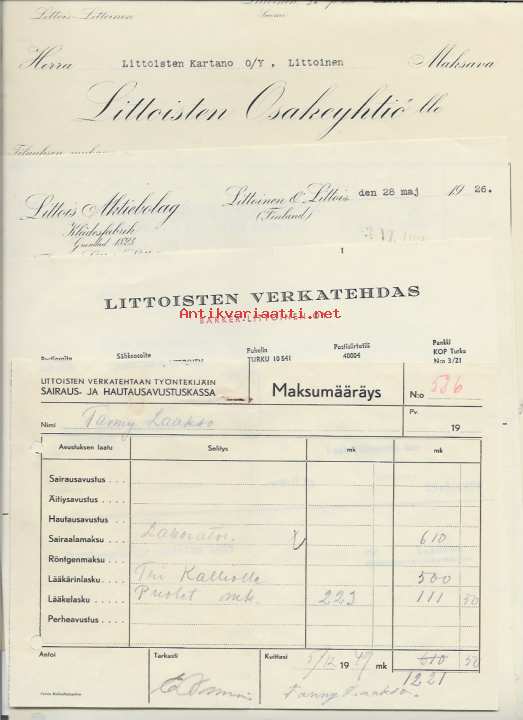 Littois-Littoinen
Suomi
Herra Littoisten Kartano O/Y. Littoinen Maksava
Littoisten Osakeyhtiö'lle
Littois Aktiebolag
Klädesfabrik
Grundlad 1823
Littoinen & Littois den 28 maj 1926.
(Finland)
LITTOISTEN VERKATEHDAS
Antikvariaatti.net
BARKER-LITTOINEN OY
Sähköosoite
Puhelin
TURKU 10 541
Postisiirtotili
40004
Pankki
KOP Turku
N:o 3/21
LITTOISTEN VERKATEHTAAN TYÖNTEKIJÄIN
SAIRAUS- JA HAUTAUSAVUSTUSKASSA
Maksumääräys
N:o 586
Nimi Fanny Laakso
Pv. 19
Avustuksen laatu Selitys mk mk
Sairausavustus
Äitiysavustus
Hautausavustus
Sairaalamaksu 610
Röntgenmaksu
Lääkärinlasku Tri Kalliolle 500
Lääkelasku Puolet mk. 223 111 50
Perheavustus
Antoi Tarkasti Kuittasi 5/12 1947 mk 610 50
1221
Fanny Laakso